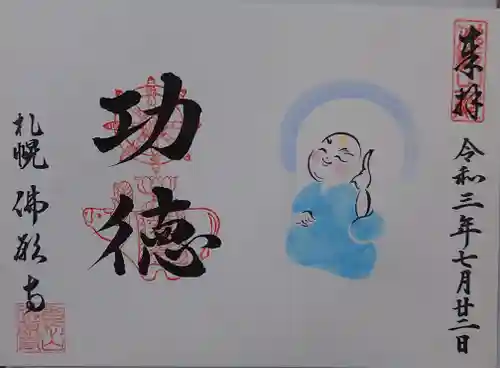 奉拝
令和三年七月廿二日
功徳
札幌 佛願寺